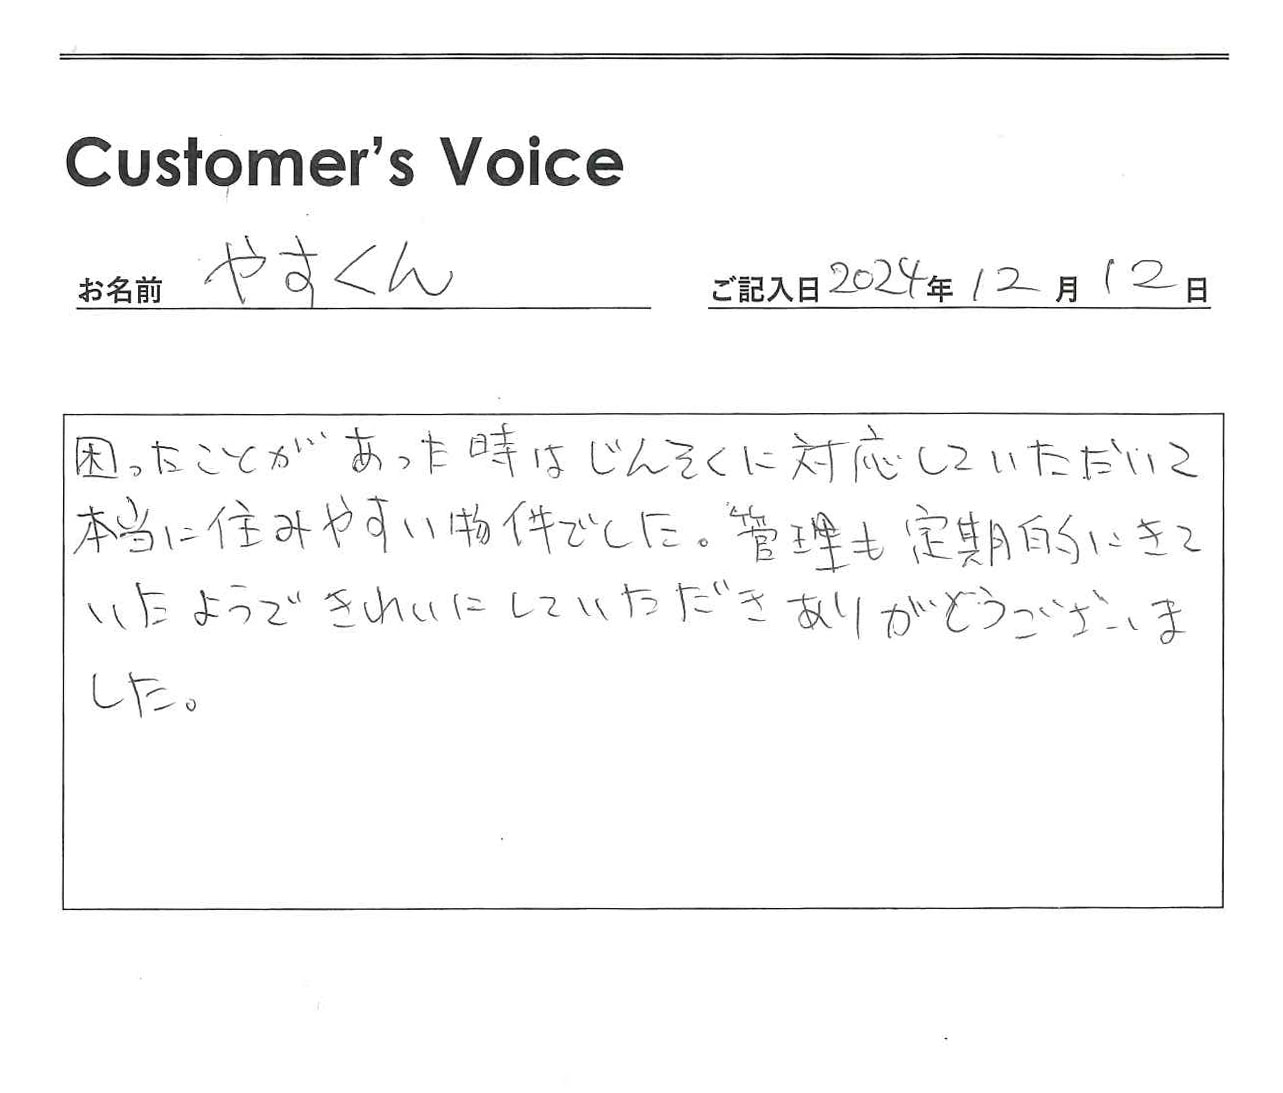 Customer's Voice
お名前 やすくん
ご記入日 2024年 12月 12日
困ったことがあった時はじんそくに対応していただいて
本当に住みやすい物件でした。管理も定期的にきて
いたようできれいにしていただきありがとうございま
した。